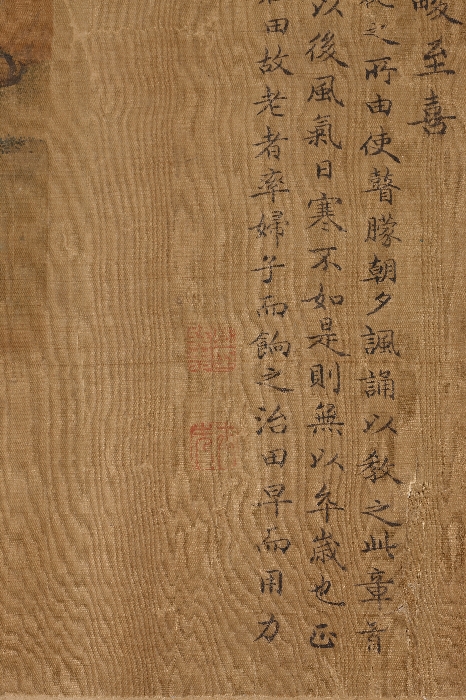 畯至喜
之所由使瞽朦朝夕諷誦以教之此章首
以後風氣日寒不如是則無以卒歲也正
田故老者率婦子而餉之治田早而用力